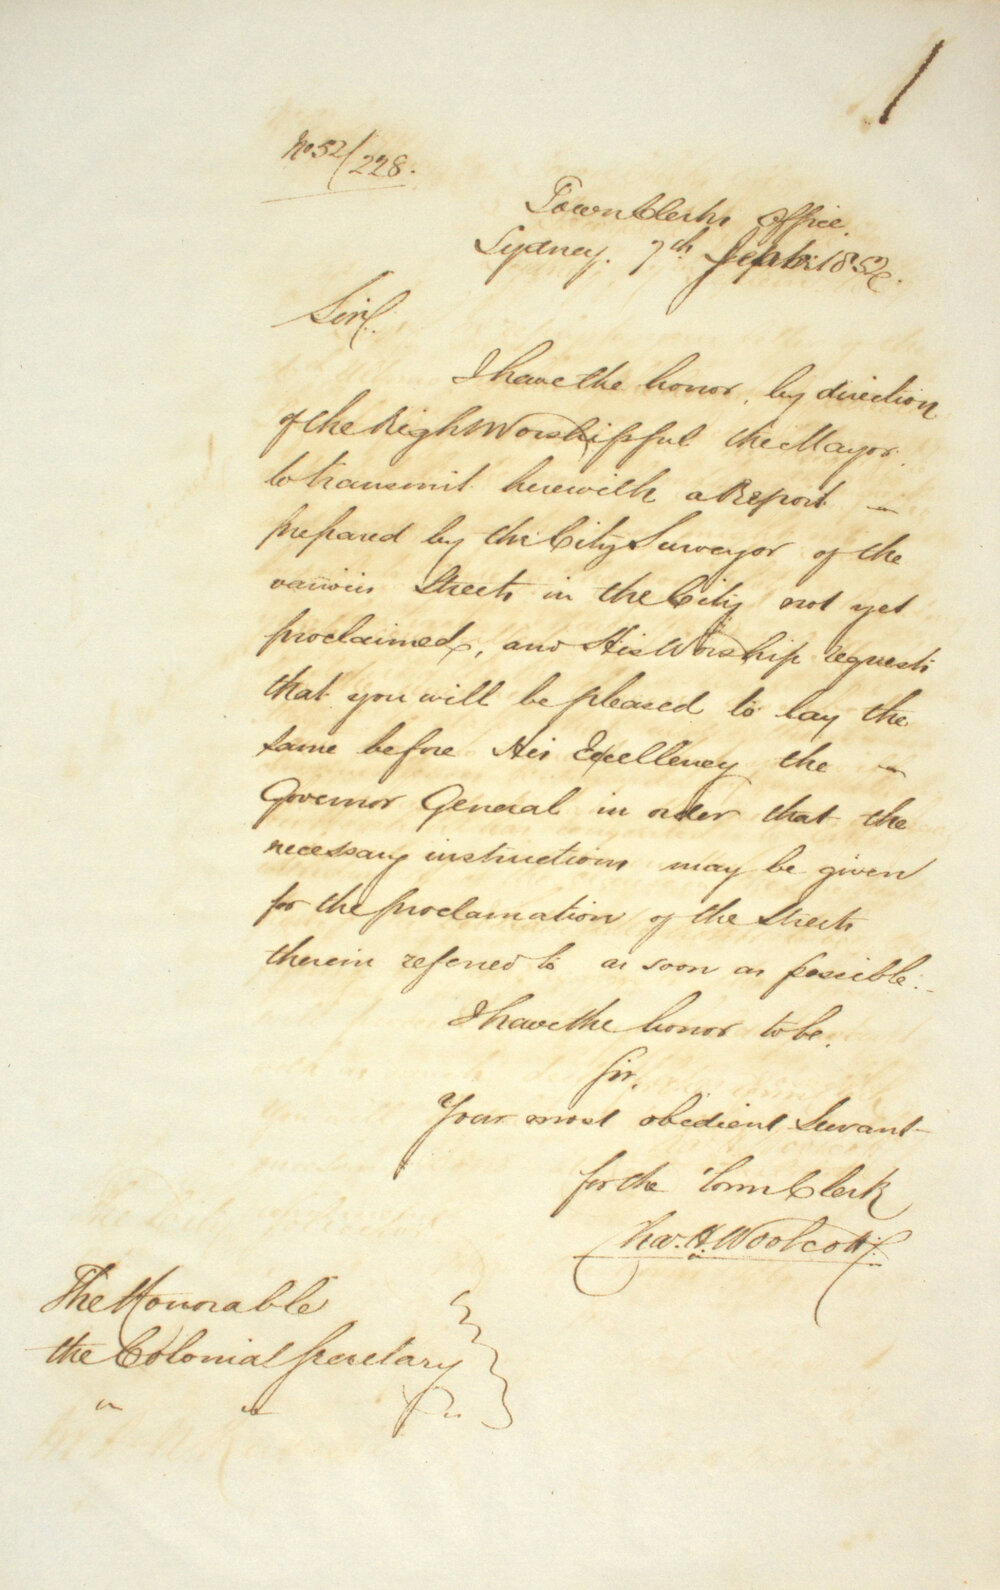 No 52/228.
Town Clerks Office.
Sydney. 7th Septr. 1852.
Sir,
I have the honor, by direction
of the Right Worshipful the Mayor.
to transmit herewith a Report —
prepared by the City Surveyor of the
various Streets in the City not yet
proclaimed, and His Worship requests
that you will be pleased to lay the
same before His Excellency the —
Governor General in order that the
necessary instructions may be given
for the proclamation of the Streets
therein referred to as soon as possible.
I have the honor to be.
Sir,
Your most obedient Servant
for the Town Clerk
Chas. H. Woolcott
The Honorable
the Colonial Secretary